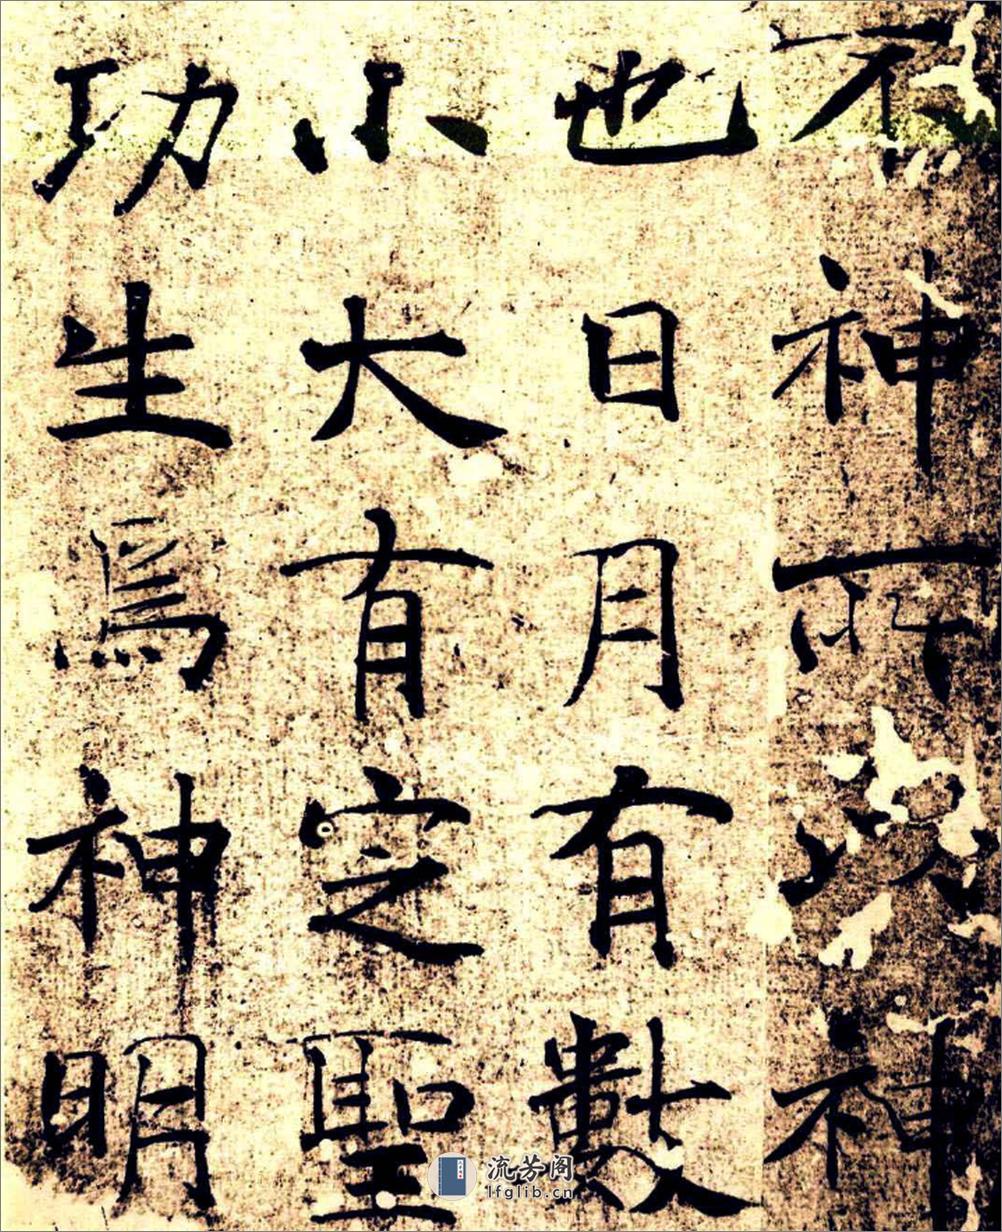 不神所以神
也日月有數
小大有定聖
功生焉神明
流芳阁
lfglib.cn